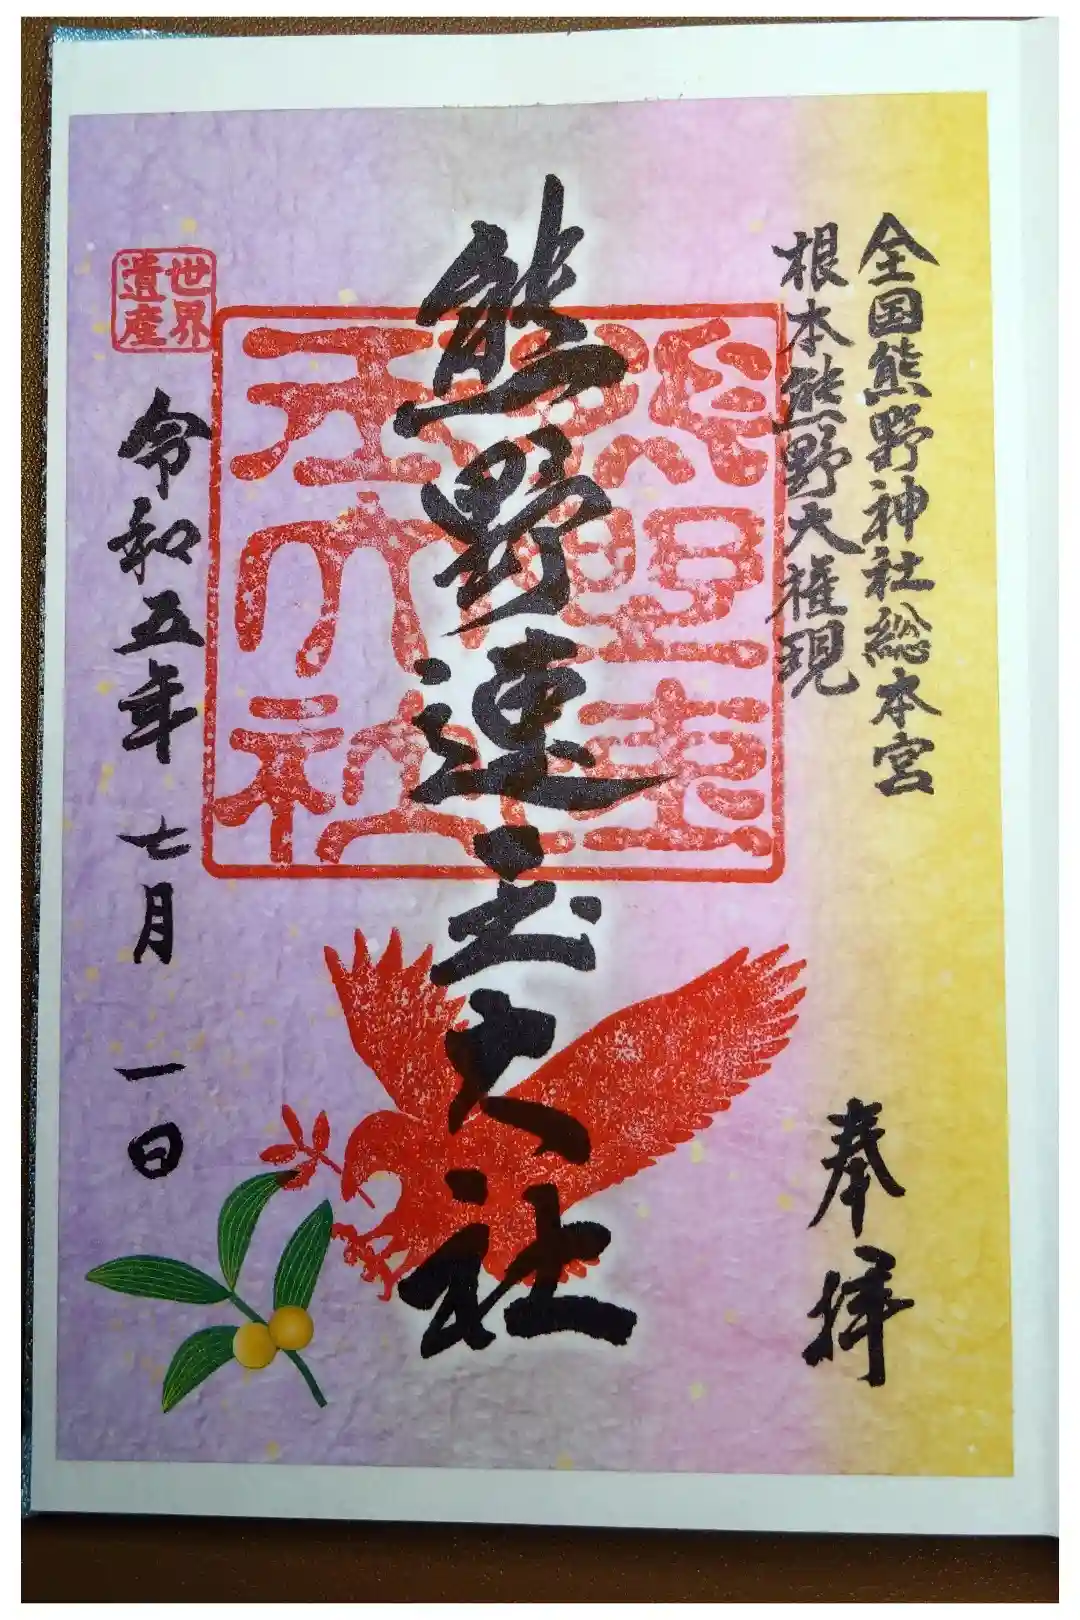 全国熊野神社総本宮
根本熊野大権現
奉拝
熊野速玉大社
熊野速
玉大社
世界
遺産
令和五年七月一日